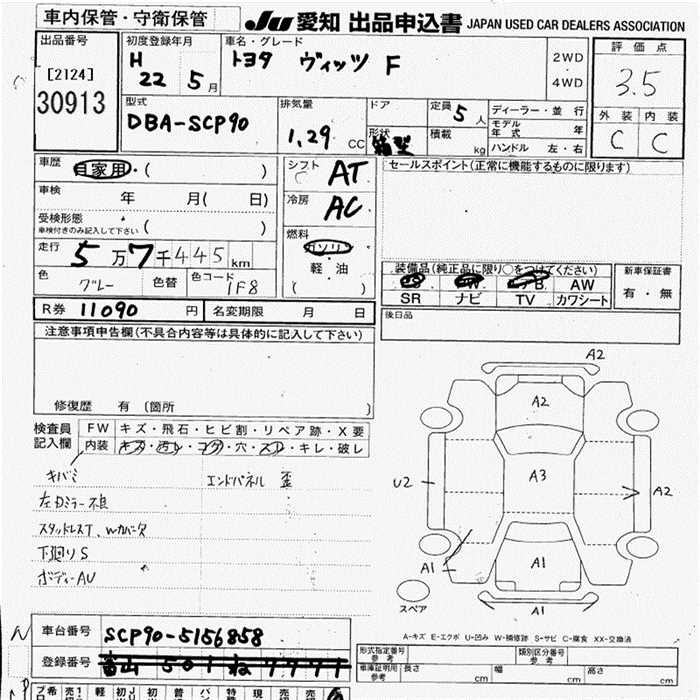 車内保管・守衛保管
JU 愛知 出品申込書 JAPAN USED CAR DEALERS ASSOCIATION
出品番号
[2124]
30913
初度登録年月
H 22 5月
車名・グレード
トヨタ ヴィッツ F
2WD・4WD
評価点
3.5
外装 内装
C C
型式
DBA-SCP90
排気量
1,29 CC
ドア
形状
箱型
定員 5人
積載 kg
ディーラー・並行
モデル年式 年
ハンドル 左・右
車歴
自家用・( )
車検 年 月( 日)
受検形態
車検付きのみ記入して下さい ( )
走行
5万7千445km
色
グレー
色替
色コード
1F8
シフト
AT
冷房
AC
燃料
ガソリン
軽・油
( )
セールスポイント(正常に機能するものに限ります)
装備品(純正品に限り○をつけてください)
AW
SR ナビ TV カワシート
新車保証書
有・無
R券 11090円
名変期限 月 日
後日品
注意事項申告欄(不具合内容等は具体的に記入して下さい)
修復歴 有 〔箇所 〕
検査員記入欄
FW キズ・飛石・ヒビ割・リペア跡・X要
内装 キズ・汚レ・コゲ・穴・スレ・キレ・破レ
キバミ
エンドパネル 歪
左ドミラー不良
スタッドレスT、Wカバー欠
下廻りS
ボディーAU
A2
A2
A3
U2
A2
A1
A1
A1
スペア
A-キズ E-エクボ U-凹み W-補修跡 S-サビ C-腐食 XX-交換済
車台番号 SCP90-5156858
登録番号 富山 501 ね 7777
形式指定番号
参考
類別区分番号
参考
車庫証明用
参考
長さ cm
幅 cm
高さ cm